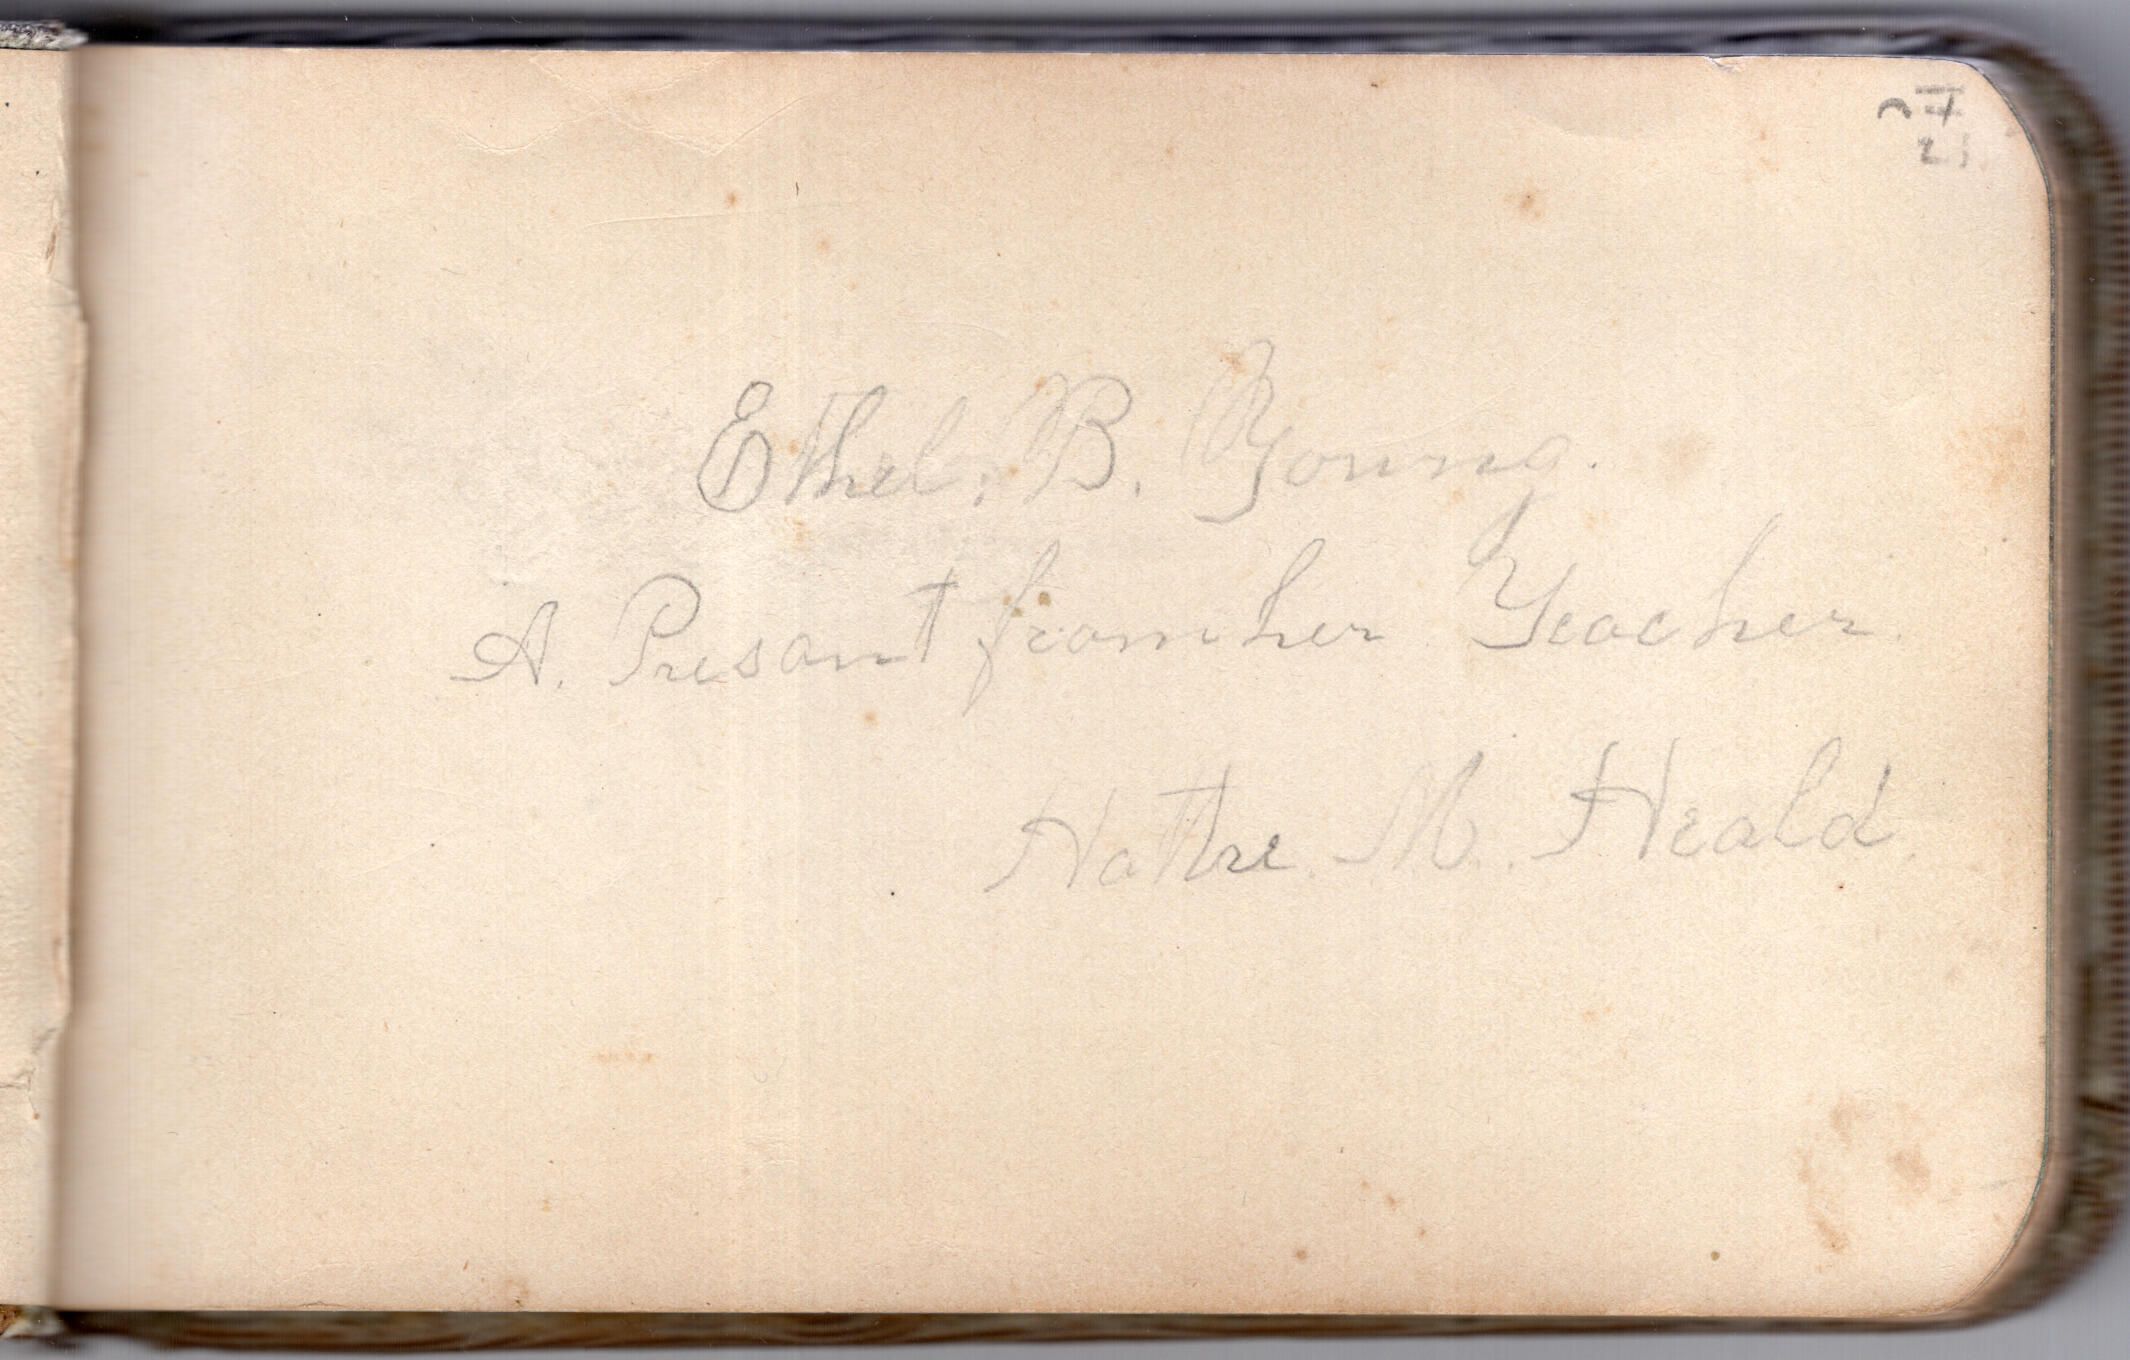 Ethel. B. Young.
A. Presant from her Teacher.
Hattie. M. Heald.